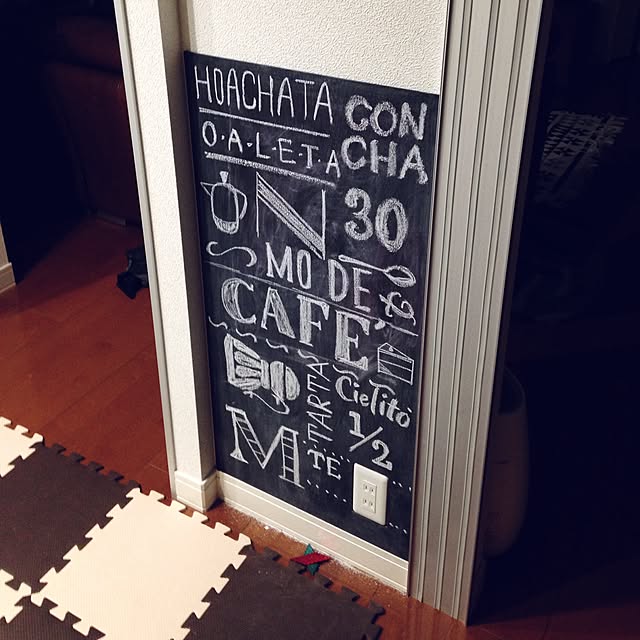 HOACHATA
O·A·L·E·T·A
CON
CHA
N
30
MO DE
&
CAFE'
TARTA
Cielito
1/2
M
TE